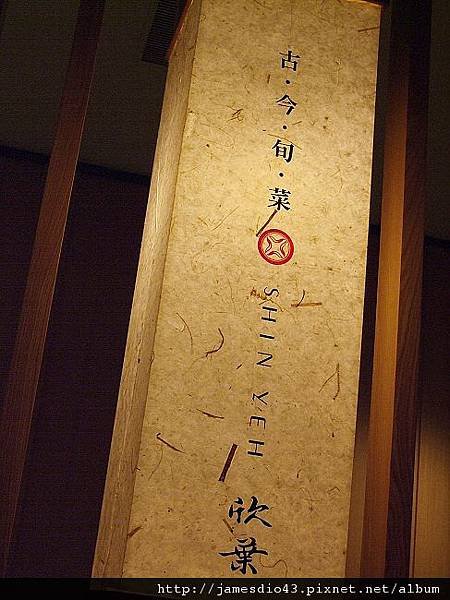 古・今・旬・菜
SHIN YEH
欣葉
http://jamesdio43.pixnet.net/album